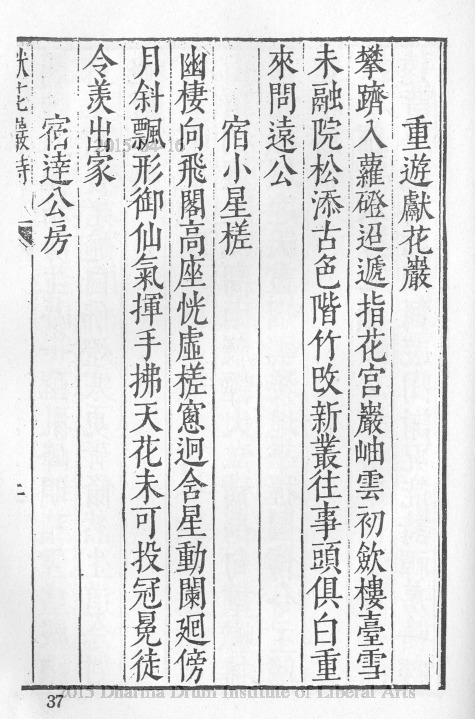 重遊獻花巖
攀躋入蘿磴迢遞指花宮巖岫雲初斂樓臺雪
未融院松添古色階竹改新叢往事頭俱白重
來問遠公
宿小星槎
幽棲向飛閣高座恍虛槎窻迥舍星動闌廻傍
月斜飄形御仙氣揮手拂天花未可投冠冕徒
令羨出家
宿達公房
獻花巖詩
二
37
2015 Dharma Drum Institute of Liberal Arts